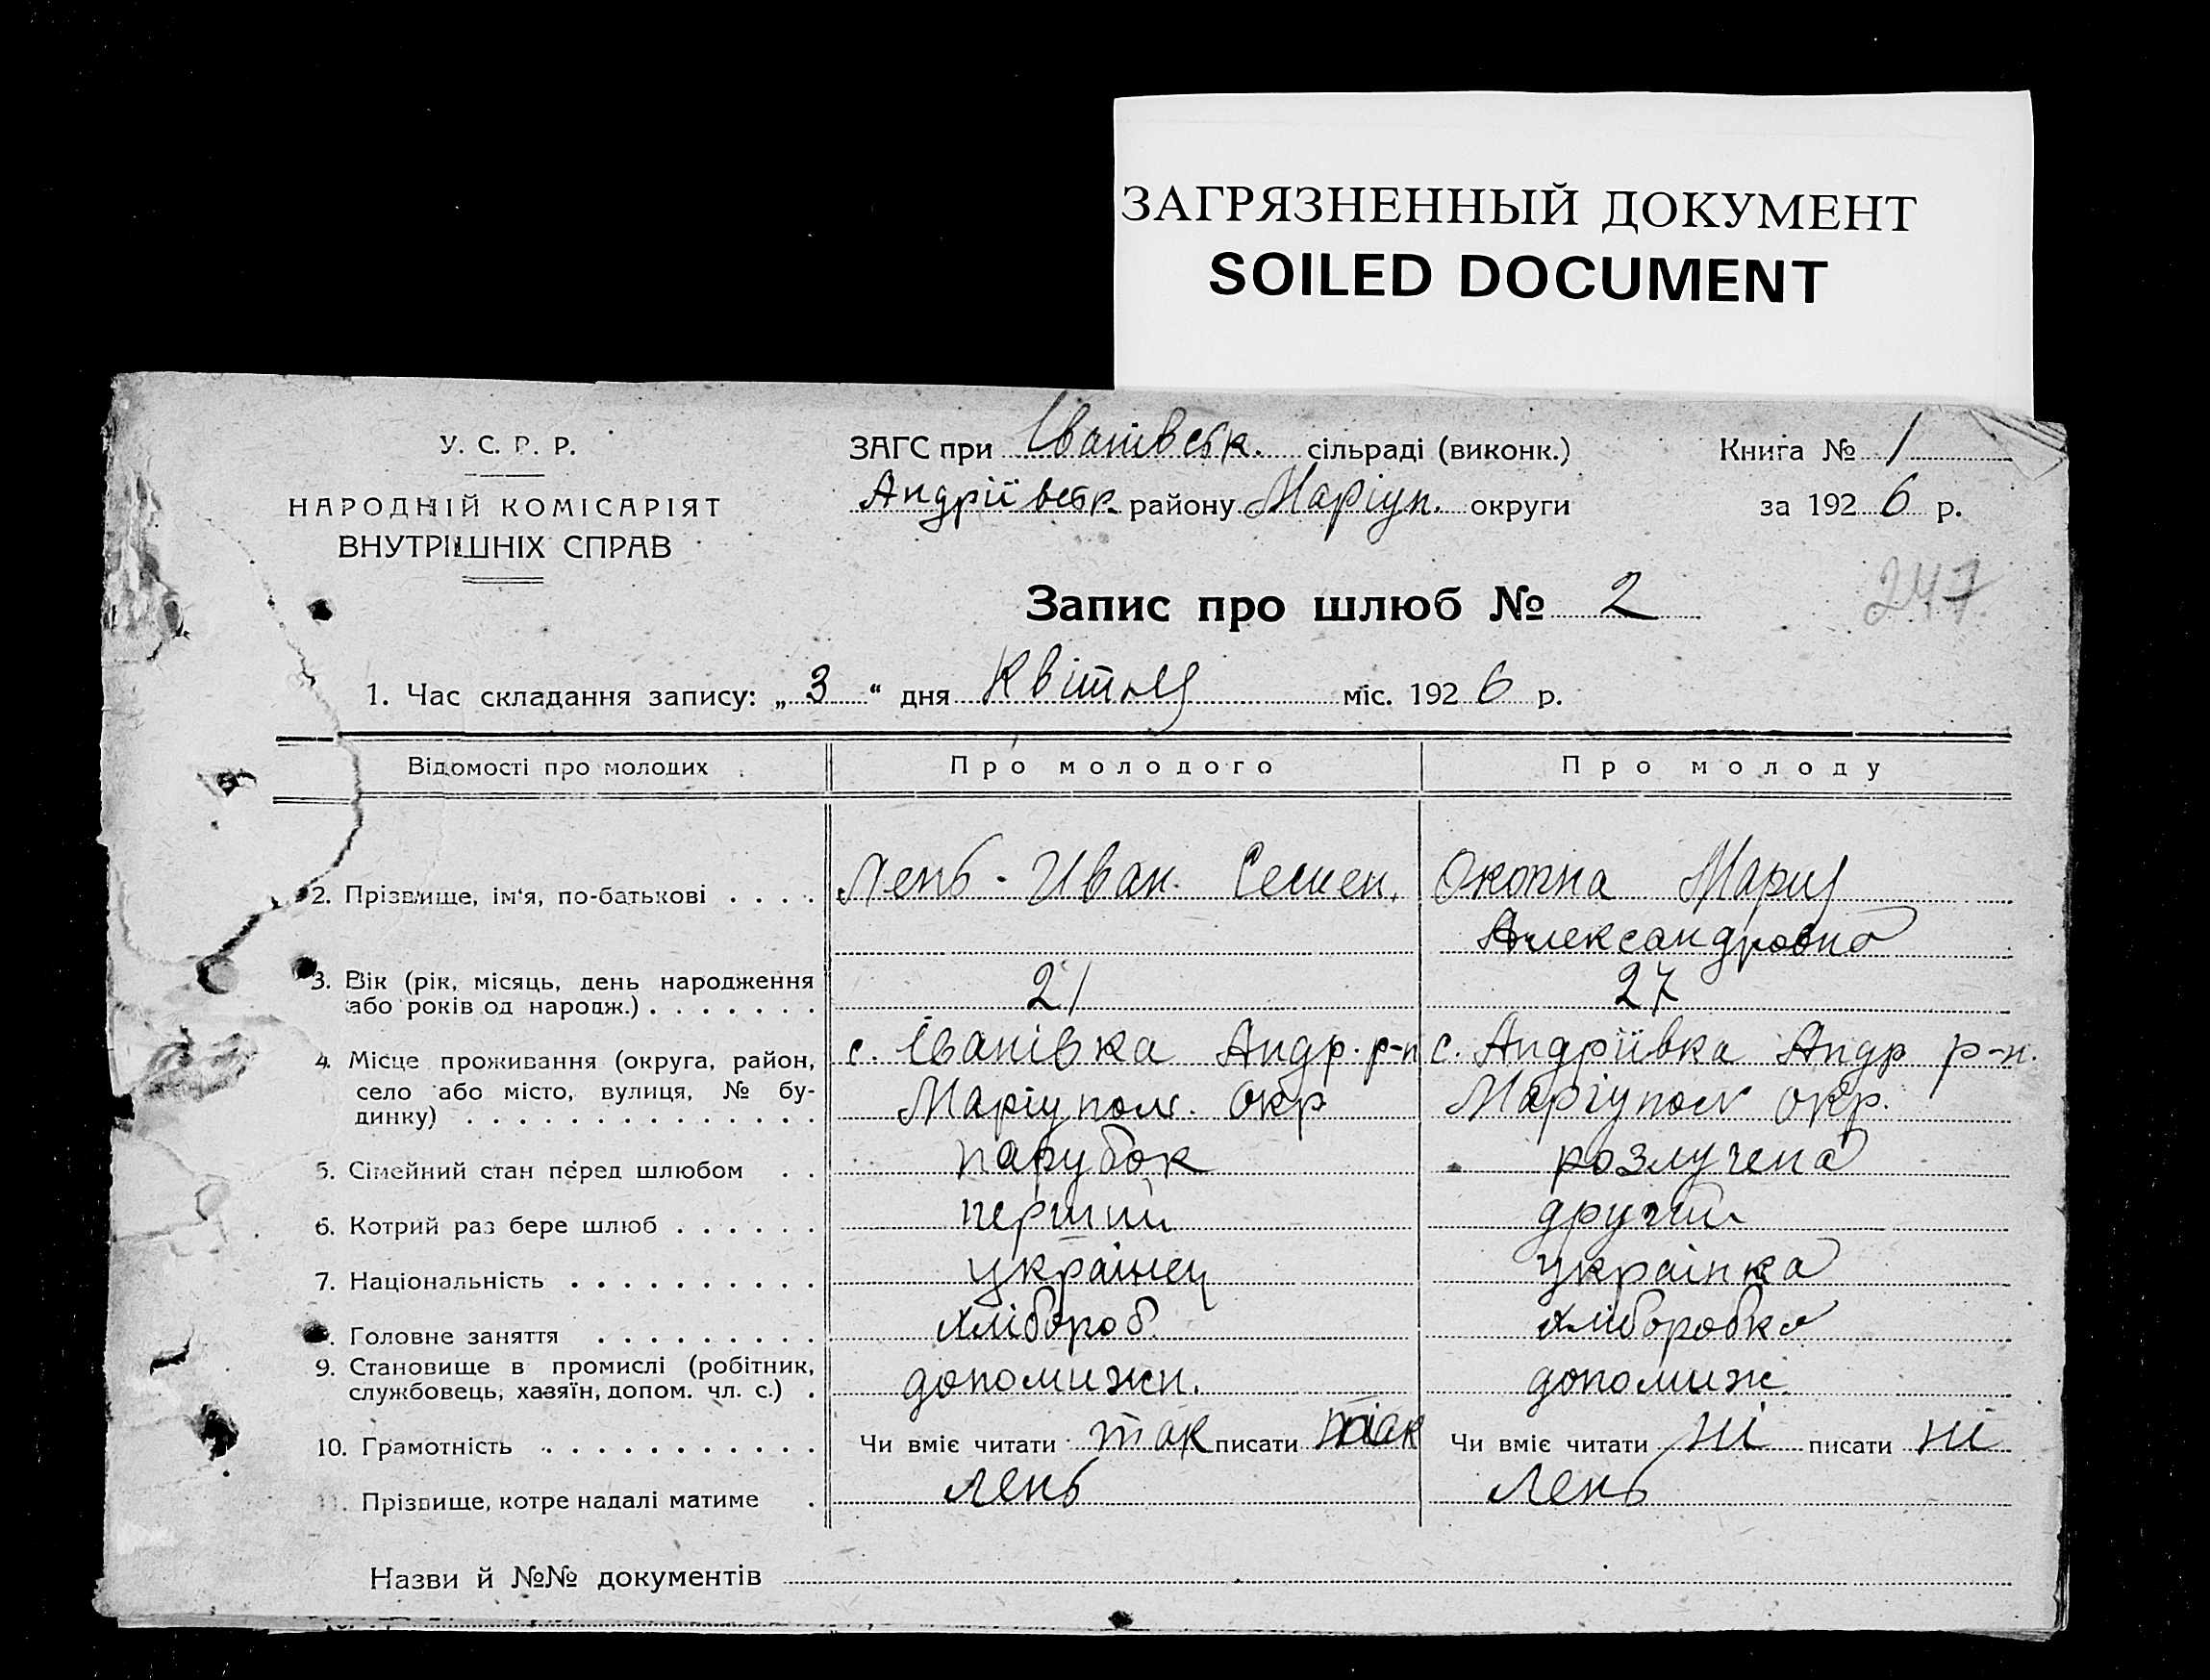 ЗАГРЯЗНЕННЫЙ ДОКУМЕНТ
SOILED DOCUMENT
У. С. Р. Р.
НАРОДНІЙ КОМІСАРІЯТ
ВНУТРІШНІХ СПРАВ
ЗАГС при Іванівськ. сільраді (виконк.)
Андріївськ. району Маріуп. округи
Книга № 1
за 1926 р.
Запис про шлюб № 2
247
1. Час складання запису: „3“ дня Квітня міс. 1926 р.
Відомості про молодих Про молодого Про молоду
2. Прізвище, ім'я, по-батькові . . . . Лень - Иван. Семен. Окопна Мария
Александровна
3. Вік (рік, місяць, день народження
або років од народж.) . . . . . . . 21 27
4. Місце проживання (округа, район, с. Іванівка Андр. р-н с. Андріївка Андр р-н.
село або місто, вулиця, № бу-
динку) . . . . . . . . . . . . . . Маріупол. окр Маріупол окр.
5. Сімейний стан перед шлюбом . . парубок розлучена
6. Котрий раз бере шлюб . . . . . . перший другий
7. Національність . . . . . . . . . . українец українка
. Головне заняття . . . . . . . . . хлібороб. хліборобка
9. Становище в промислі (робітник,
службовець, хазяїн, допом. чл. с.) . допомижн. допомиж.
10. Грамотність . . . . . . . . . . . . Чи вміє читати так писати так Чи вміє читати ні писати ні
11. Прізвище, котре надалі матиме . Лень Лень
Назви й №№ документів